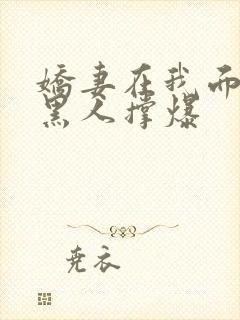 娇妻在我面
黑人撑爆
尧衣